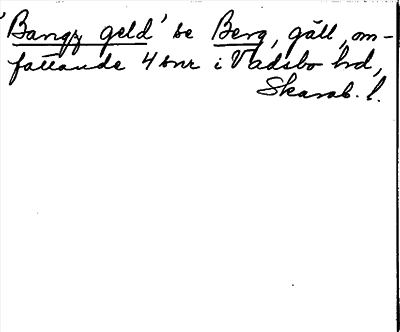 'Bangx geld' se Berg, gäll, om-
fattande 4 snr i Vadsbo hd,
Skarab. l.